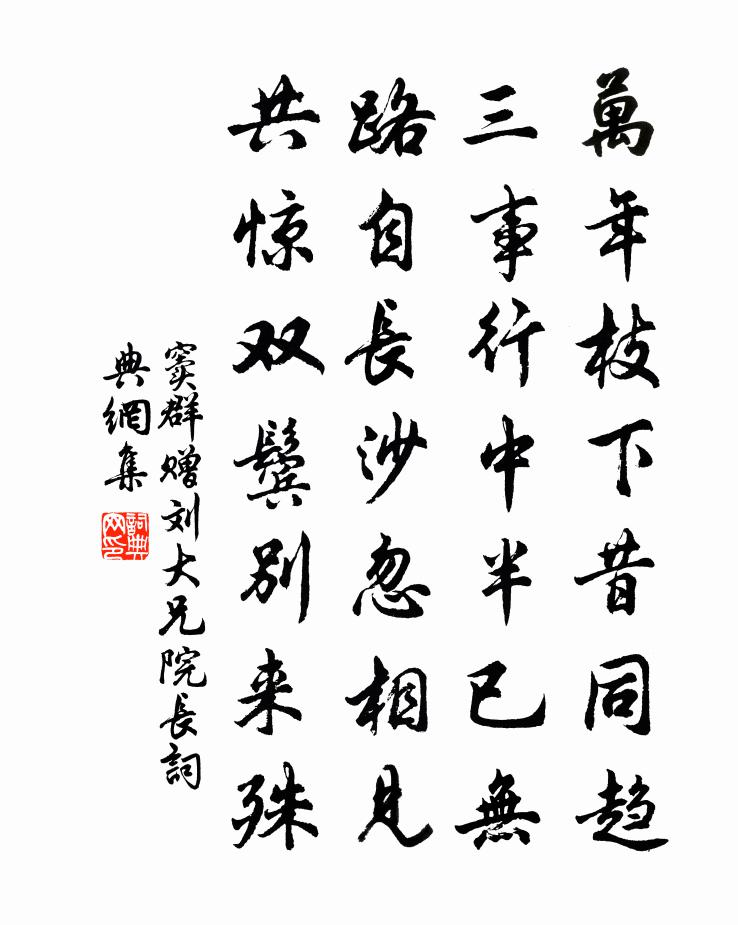 萬年枝下昔同趋
三事行中半已無
路自長沙忽相見
共惊双鬓别来殊
窦群赠刘大兄院長詞
典網集
詞典
网印